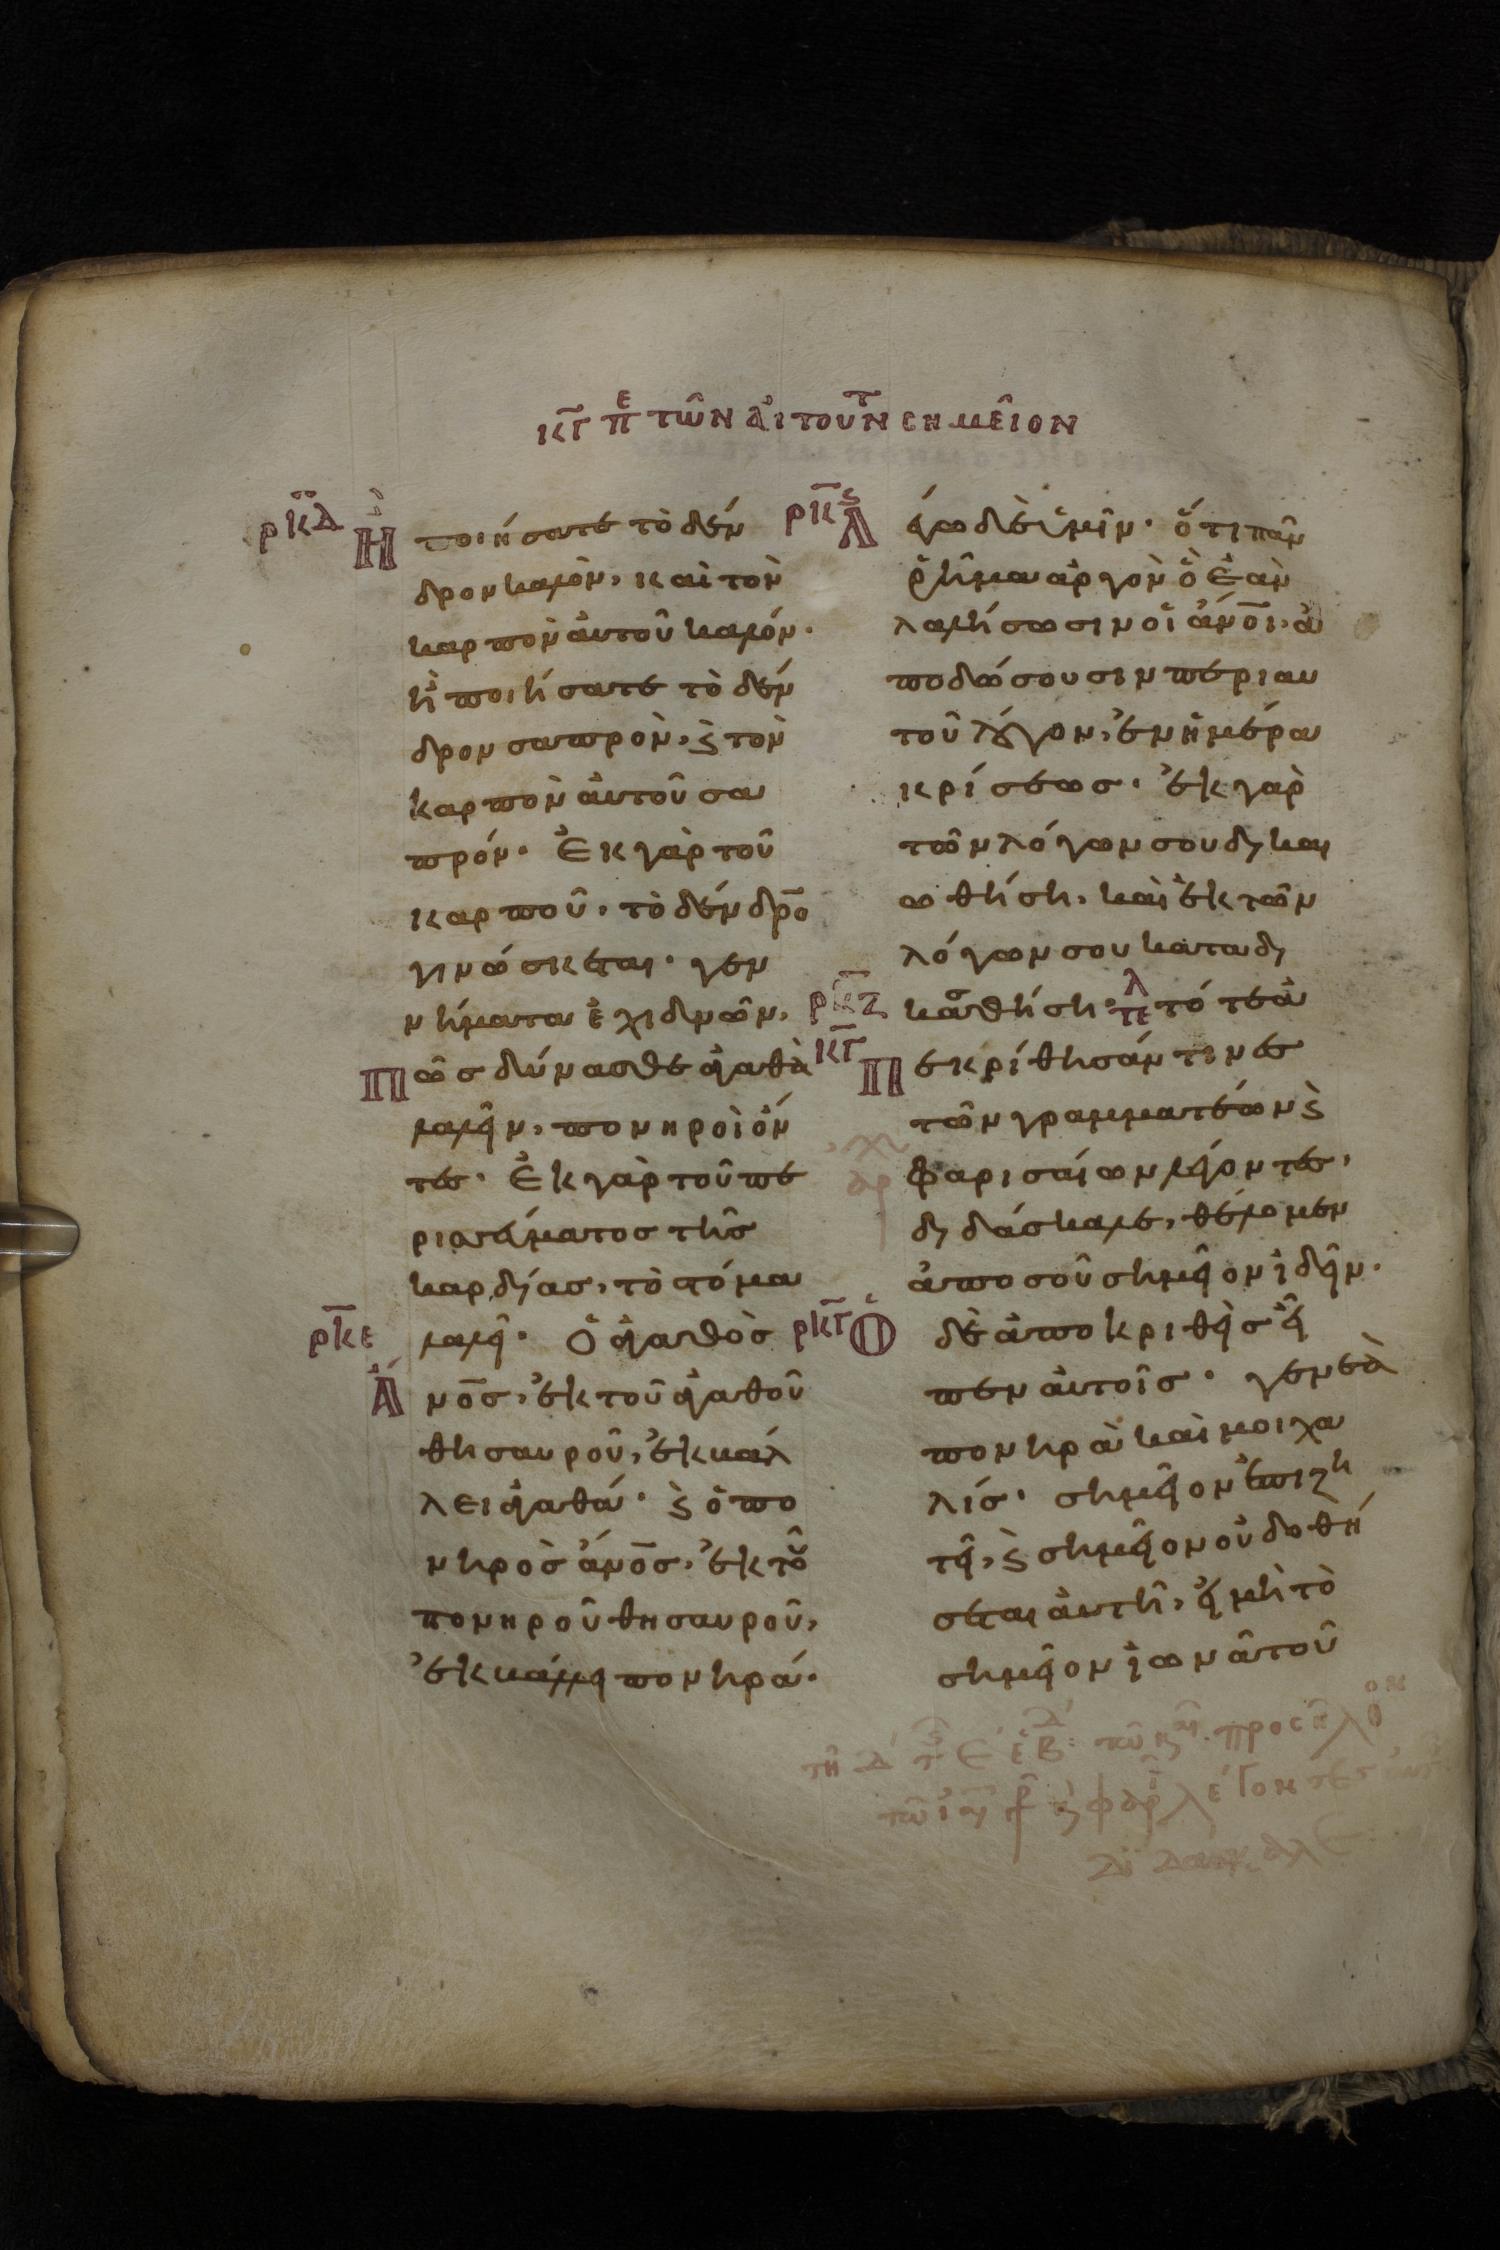 κγ πε τῶν αἰτούντ σημεῖον
ρκδ
Ἢ ποιήσατε τὸ δέν
δρον καλὸν, καὶ τὸν
καρπὸν αὐτοῦ καλόν·
ἢ ποιήσατε τὸ δέν
δρον σαπρὸν, ϗ τὸν
καρπὸν αὐτοῦ σα
πρόν· Ἐκ γὰρ τοῦ
καρποῦ, τὸ δένδρο
γινώσκεται· γεν
νήματα ἐχιδνῶν,
Πῶς δύνασθε ἀγαθὰ
λαλεῖν, πονηροὶ ὄν
τες· Ἐκ γὰρ τοῦ πε
ρισσεύματος τῆς
καρδίας, τὸ στόμα
ρκε
λαλεῖ· Ὁ ἀγαθὸς
Ἄνος, ἐκ τοῦ ἀγαθοῦ
θησαυροῦ, ἐκβάλ
λει ἀγαθά· ϗ ὁ πο
νηρὸς ἄνος, ἐκ τοῦ
πονηροῦ θησαυροῦ,
ἐκβάλλει πονηρά·
ρκς
Λέγω δὲ ὑμῖν· ὅτι πᾶν
ῥῆμα ἀργὸν ὃ ἐὰν
λαλήσωσιν οἱ ἄνοι, ἀ
ποδώσουσιν περὶ αυ
τοῦ λόγον, ἐν ἡμέρα
κρίσεως· ἐκ γὰρ
τῶν λόγων σου δικαι
ωθήση, καὶ ἐκ τῶν
λόγων σου καταδι
ρκζ
κασθήση· τότε ἀ
κγ
Πεκρίθησάν τινες
τῶν γραμματέων ϗ
φαρισαίων λέγοντες,
διδάσκαλε, θέλομεν
ἀπο σοῦ σημεῖον ἰδεῖν·
ρκγ
Ὁ δὲ ἀποκριθεὶς εἶ
πεν αὐτοῖς· γενεὰ
πονηρὰ καὶ μοιχα
λίς· σημεῖον ἐπιζη
τεῖ, ϗ σημεῖον οὐ δοθή
σεται αὐτῆ, εἰ μὴ τὸ
σημεῖον ἰωνᾶ τοῦ